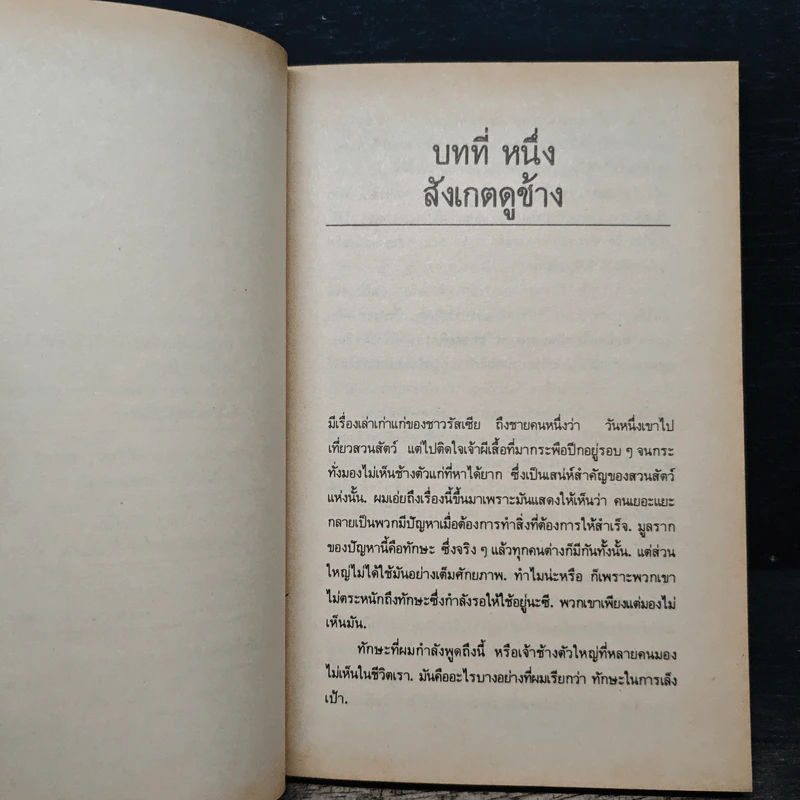 บทที่ หนึ่ง
สังเกตดูช้าง
มีเรื่องเล่าเก่าแก่ของชาวรัสเซีย ถึงชายคนหนึ่งว่า วันหนึ่งเขาไป
เที่ยวสวนสัตว์ แต่ไปติดใจเจ้าผีเสื้อที่มากระพือปีกอยู่รอบ ๆ จนกระ
ทั่งมองไม่เห็นช้างตัวแก่ที่หาได้ยาก ซึ่งเป็นเสน่ห์สำคัญของสวนสัตว์
แห่งนั้น. ผมเอ่ยถึงเรื่องนี้ขึ้นมาเพราะมันแสดงให้เห็นว่า คนเยอะแยะ
กลายเป็นพวกมีปัญหาเมื่อต้องการทำสิ่งที่ต้องการให้สำเร็จ. มูลราก
ของปัญหานี้คือทักษะ ซึ่งจริง ๆ แล้วทุกคนต่างก็มีกันทั้งนั้น. แต่ส่วน
ใหญ่ไม่ได้ใช้มันอย่างเต็มศักยภาพ. ทำไมน่ะหรือ ก็เพราะพวกเขา
ไม่ตระหนักถึงทักษะซึ่งกำลังรอให้ใช้อยู่นะซี. พวกเขาเพียงแต่มองไม่
เห็นมัน.
ทักษะที่ผมกำลังพูดถึงนี้ หรือเจ้าช้างตัวใหญ่ที่หลายคนมอง
ไม่เห็นในชีวิตเรา. มันคืออะไรบางอย่างที่ผมเรียกว่า ทักษะในการเล็ง
เป้า.